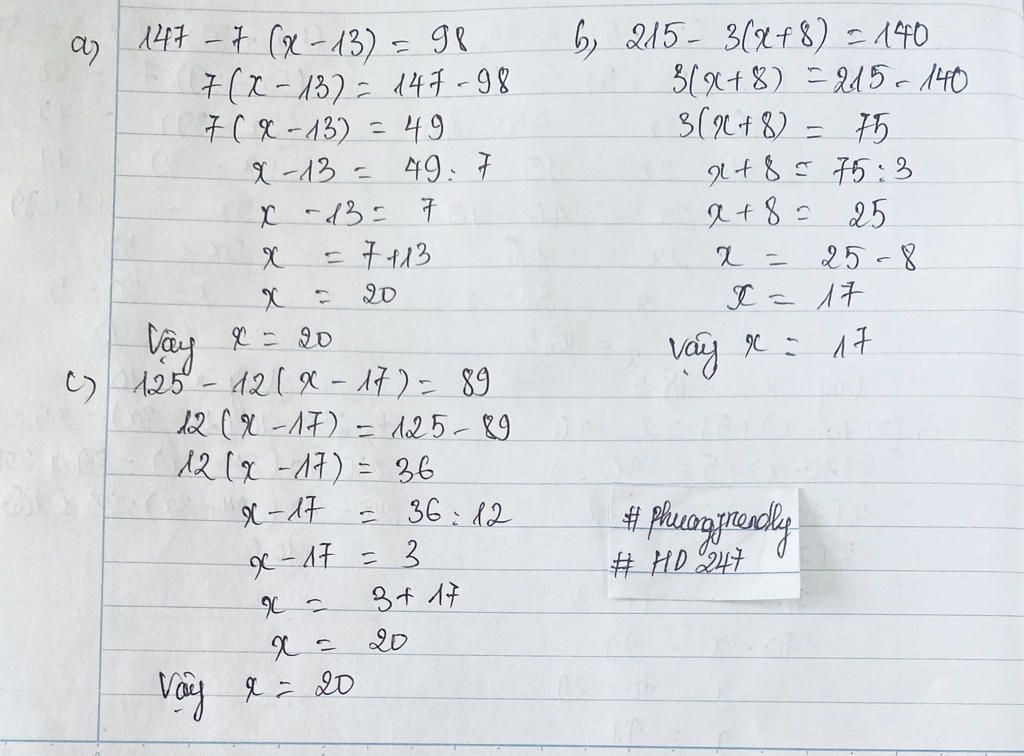 a) 147 - 7 (x - 13) = 98
7(x - 13) = 147 - 98
7(x - 13) = 49
x - 13 = 49 : 7
x - 13 = 7
x = 7 + 13
x = 20
Vậy x = 20
b) 215 - 3(x + 8) = 140
3(x + 8) = 215 - 140
3(x + 8) = 75
x + 8 = 75 : 3
x + 8 = 25
x = 25 - 8
x = 17
Vậy x = 17
c) 125 - 12(x - 17) = 89
12(x - 17) = 125 - 89
12(x - 17) = 36
x - 17 = 36 : 12
x - 17 = 3
x = 3 + 17
x = 20
Vậy x = 20
# phuongfriendly
# HD 247